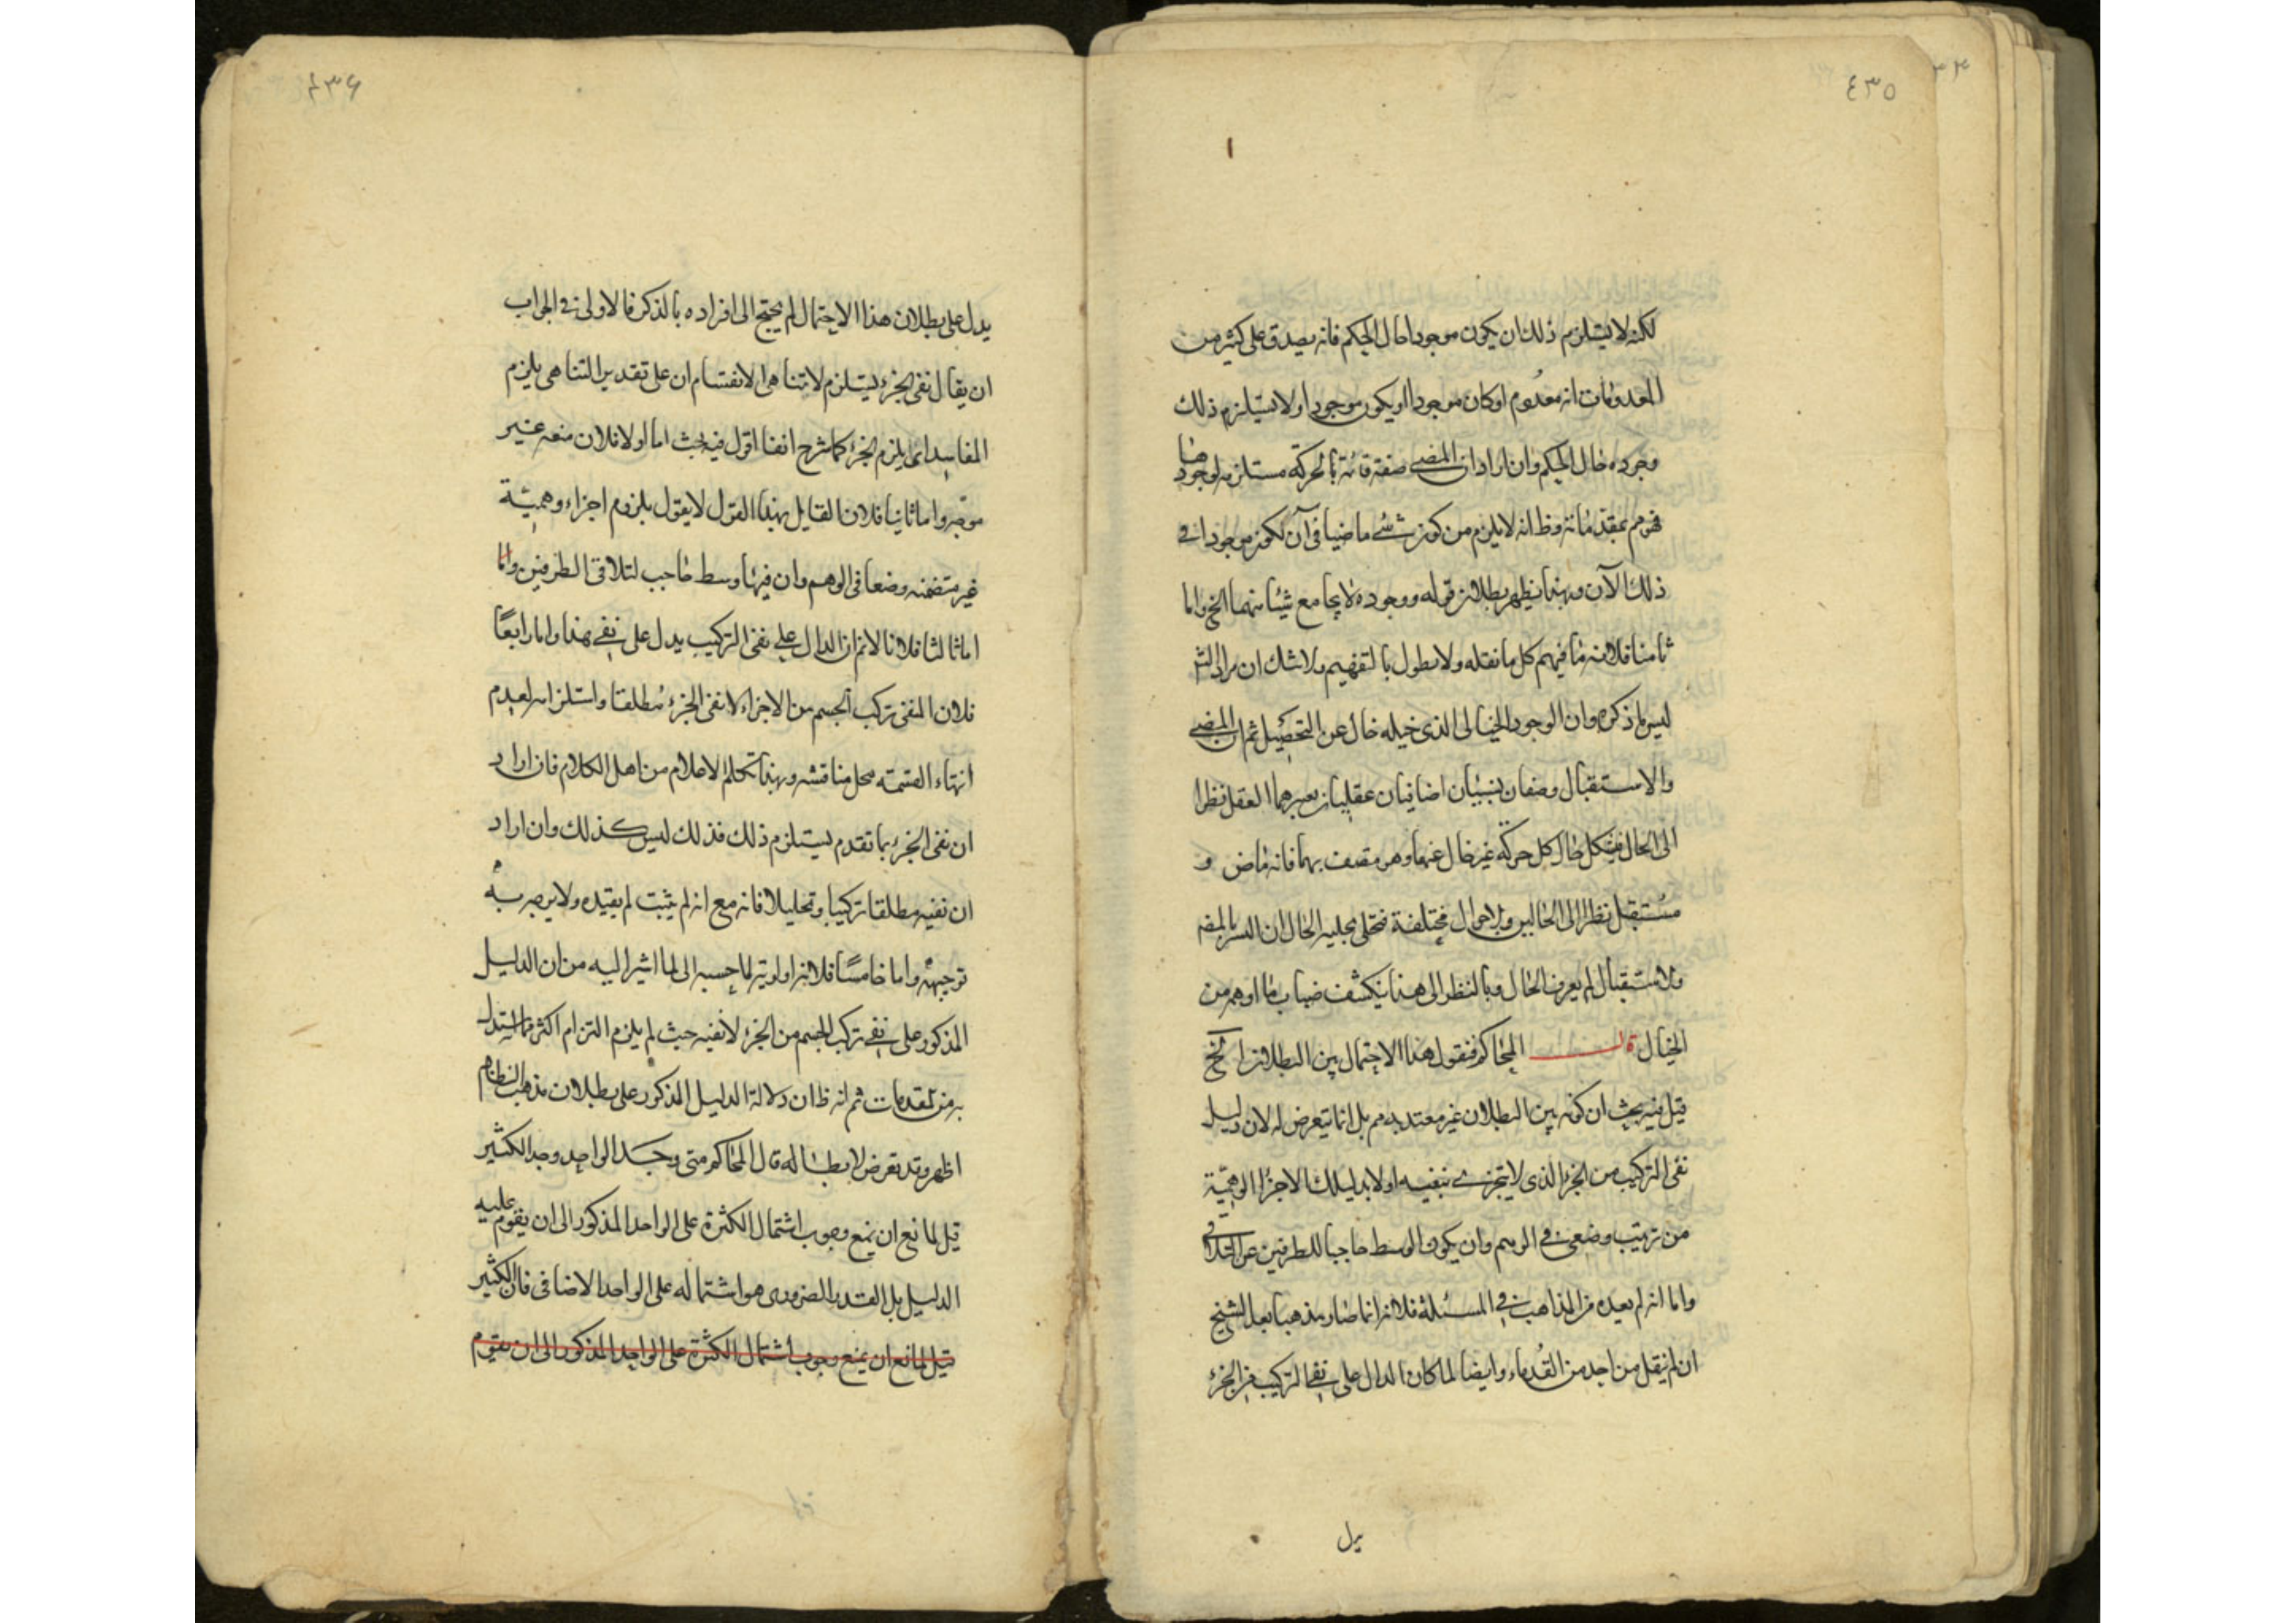 ٤٣٥
لكنه لا يستلزم ذلك ان يكون موجودا حال الحكم فانه يصدق على كثير من
المعدومات انه معدوم او كان موجودا او يكون موجودا ولا يستلزم ذلك
وجوده حال الحكم وان اراد ان المضي صفة قائمة بالحركة مستلزمه لوجودها
فهو مقدمانه وظ انه لا يلزم من كونه شئ ماضيا في آن لكونه موجودا في
ذلك الآن وبهذا يظهر بطلان قوله ووجوده لا يجامع شيئا منهما الخ واما
ثامنا فلانه ما فيهم كل ما نقله ولا نطول بالتفهيم ولا شك ان مراد
ليس ما ذكره وان الوجود الخيالي الذي خيله خال عن التحصيل ثم ان المضي
والاستقبال وصفان نسبيان اضافيان عقليان يعبرهما العقل نظرا
الى الحال في كل حال كل حركة غير خال عنها وهو متصف بهما فانه ماض و
مستقبل نظرا الى الحالين وبلا حوال مختلفة فتحلى بجلية الحال ان
ولاستقبال لم يعرف الحال وبالنظر الى هذا ينكشف ضباب ما اوهم من
الخيال قال المحاكم فنقول هذا الاحتمال بين البطلان الخ
قيل فيه بحث ان كونه بين البطلان غير معتد به م بل انما يتعرض له لان دليل
نفى التركيب من الجزء الذي لا يتجزى ينفيه اولا بد لتلك الاجزا الوهمية
من ترتيب وضعي في الوهم وان يكون الوسط حاجبا للطرفين عن التلاقي
واما انه لم يعده من المذاهب في المسئلة فلانه انما صار مذهبا بعد الشيخ
ان لم ينقل من احد من القدماء وايضا لما كان الدال على نفي التركيب من الجزء
يدل
٤٣٦
يدل على بطلان هذا الاحتمال لم يحتج الى افراده بالذكر فالاولى في الجواب
ان يقال نفى الجزء يستلزم لا تناهى الانقسام ان على تقدير التناهى يلزم
المفاسد انما يلزم الجزء كما شرح انفا اقول فيه بحث اما اولا فلان منعه غير
موجه واما ثانيا فلان القايل بهذا القول لا يقول بلزوم اجزاء وهمية
غير متضمنه وضعا في الوهم وان فيها وسط حاجب لتلاقى الطرفين واما
اما ثالثا فلانا لانم ان الدال على نفى التركيب يدل على نفي هذا واما رابعا
فلان المنفى تركب الجسم من الاجزاء لا نفى الجزء مطلقا واستلزامه لعدم
انتهاء القسمة محل مناقشه وبهذا تكلم الاعلام من اهل الكلام فان اراد
ان نفى الجزء بما تقدم يستلزم ذلك فذلك ليس كذلك وان اراد
ان نفيه مطلقا تركيبا وتحليلا فانه مع انه لم يثبت لم يقيده ولا يوجب
توجيهه واما خامسا فلانه اولوية ما حسبه الى ما اشير اليه من ان الدليل
المذكور على نفي تركب الجسم من الجزء لا نفيه حيث لم يلزم التزام اكثر مما استدل
به من مقدمات ثم انه ظ ان دلالة الدليل المذكور على بطلان مذهب النظام
اظهر وقد تعرض لابطاله قال المحاكم متى وجد الواحد وجد الكثير
قيل لمانع ان يمنع وجوب اشتمال الكثرة على الواحد المذكور الى ان يقوم عليه
الدليل بل القدر الضرورى هو اشتماله على الواحد الاضافى فان الكثير
قيل لمانع ان يمنع وجوب اشتمال الكثرة على الواحد المذكور الى ان يقوم